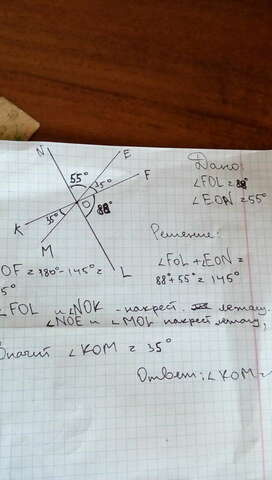 N
E
F
55°
35°
O
88°
35°
K
M
L
Дано:
∠FOL = 88°
∠EON = 55°
Решение:
∠FOL + ∠EON =
88° + 55° = 145°
OF = 180° - 145° =
5°
∠FOL и ∠NOK - накрест. лежащ.
∠NOE и ∠MOL накрест лежащ,
Значит ∠KOM = 35°
Ответ: ∠KOM =